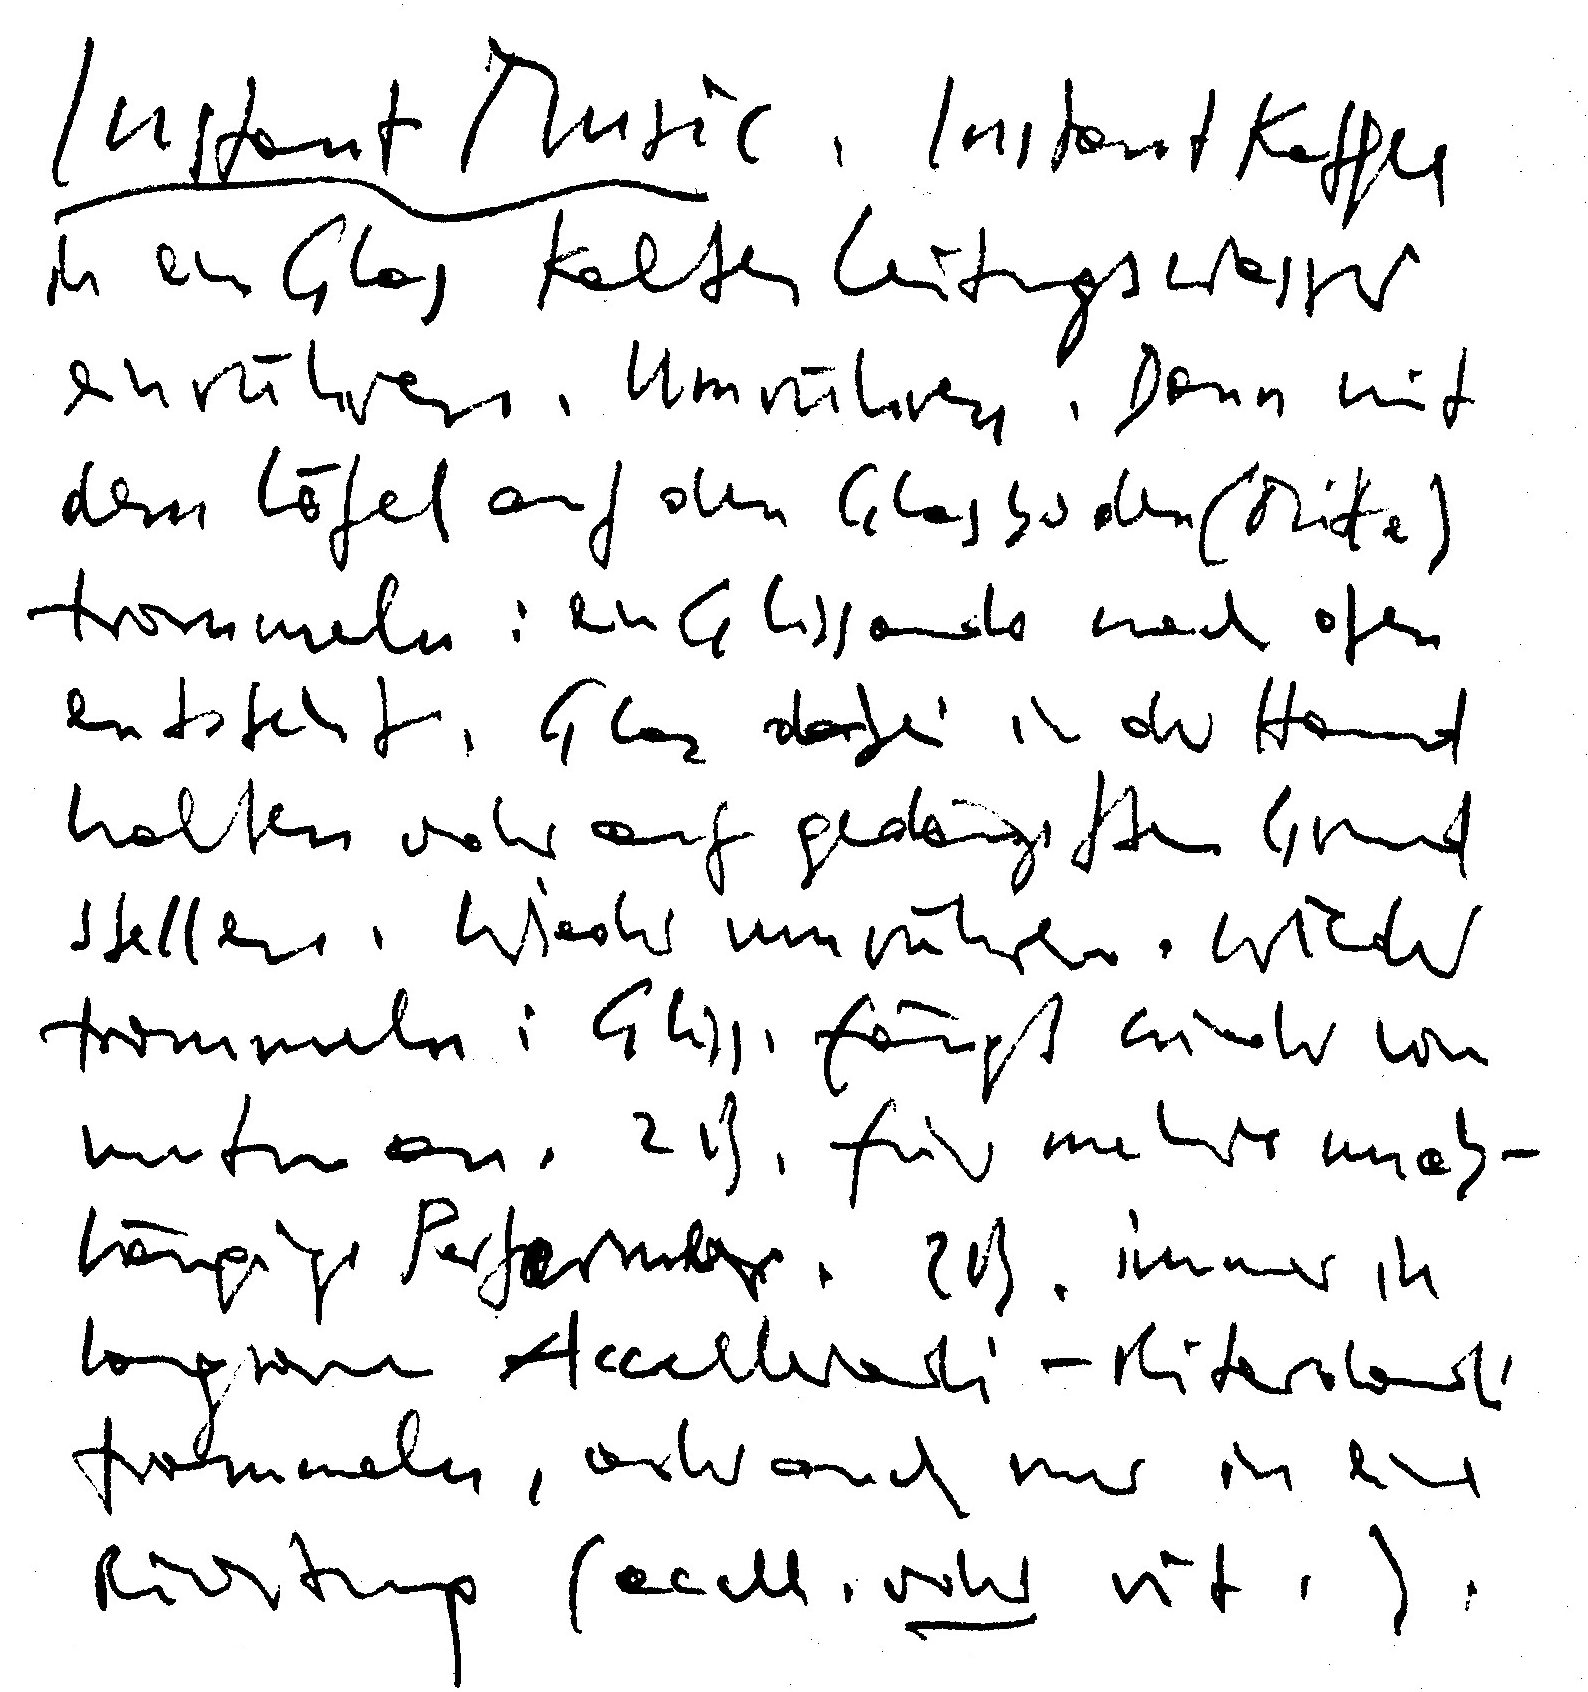 Instant Music. Instantkaffee
in ein Glas kalten Leitungswasser
einrühren. Umrühren. Dann mit
dem Löffel auf den Glasboden (Mitte)
trommeln: ein Glissando nach oben
entsteht. Glas dabei in der Hand
halten oder auf gedämpften Grund
stellen. Wieder umrühren. Wieder
trommeln: Gliss. fängt wieder von
unten an. ZB. für mehrere unab-
hängige Performer. ZB. immer in
langsamen Accellerandi - Ritardandi
trommeln, oder auch nur in eine
Richtung (accell. oder rit.).